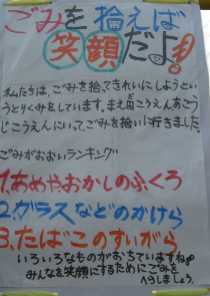 ごみを拾えば
笑顔だよ!
私たちは、ごみを拾ってきれいにしようとい
うとりくみをしています。まえ田こうえんあごう
じこうえんにいって、ごみを拾いに行きました。
ごみがおおいランキング
1.あめやおかしのふくろ
2.ガラスなどのかけら
3.たばこのすいがら
いろいろなものがおちていますね。
みんなを笑顔にするためにごみを
へらしましょう。